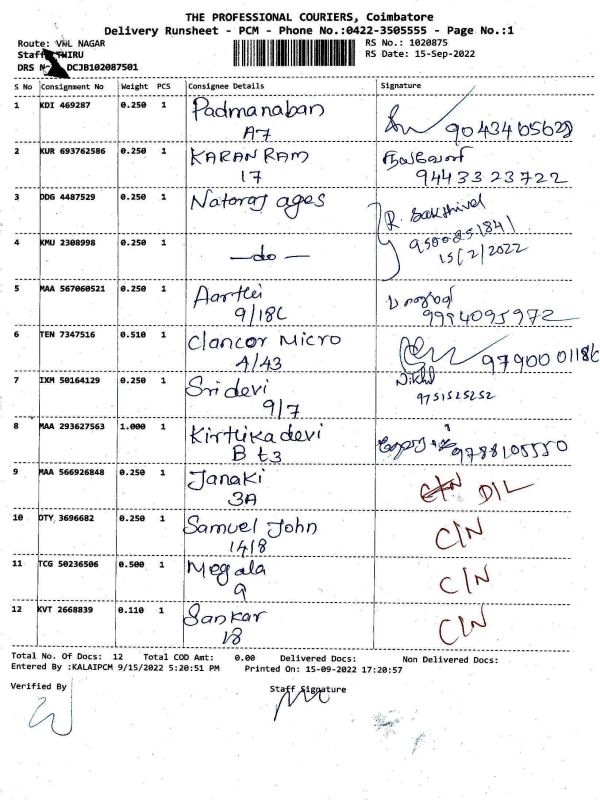 THE PROFESSIONAL COURIERS, Coimbatore
Delivery Runsheet - PCM - Phone No.:0422-3505555 - Page No.:1
Route: VNL NAGAR
RS No.: 1020875
Staff THIRU
RS Date: 15-Sep-2022
DRS No DCJB102087501
S No Consignment No Weight PCS Consignee Details Signature
1 KDI 469287 0.250 1 Padmanaban
A7 9043465628
2 KUR 693762586 0.250 1 KARAN RAM
17 9443323722
3 DDG 4487529 0.250 1 Natoraj ages R. Sakthivel
9500851841
4 KMU 2308998 0.250 1 -do- 15/2/2022
5 MAA 567060521 0.250 1 Aarthi
9/18C 9994095972
6 TEN 7347516 0.510 1 Clancor Micro
A/43 9790001186
7 IXM 50164129 0.250 1 Sridevi Nikhil
9/7 9751525252
8 MAA 293627563 1.000 1 Kirthikadevi
B t3 9788105550
9 MAA 566926848 0.250 1 Janaki
3A C/N D/L
10 DTY 3696682 0.250 1 Samuel John
14/8 C/N
11 TCG 50236506 0.500 1 Megala
9 C/N
12 KVT 2668839 0.110 1 Sankar
18 C/N
Total No. Of Docs: 12 Total COD Amt: 0.00 Delivered Docs: Non Delivered Docs:
Entered By :KALAIPCM 9/15/2022 5:20:51 PM Printed On: 15-09-2022 17:20:57
Verified By
Staff Signature